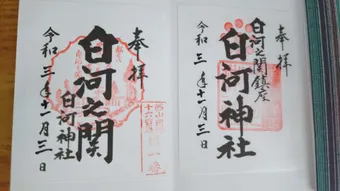 奉拝
白河之関
白河神社
令和三年十一月三日
奉拝
白河之関鎮座
白河神社
令和三年十一月三日